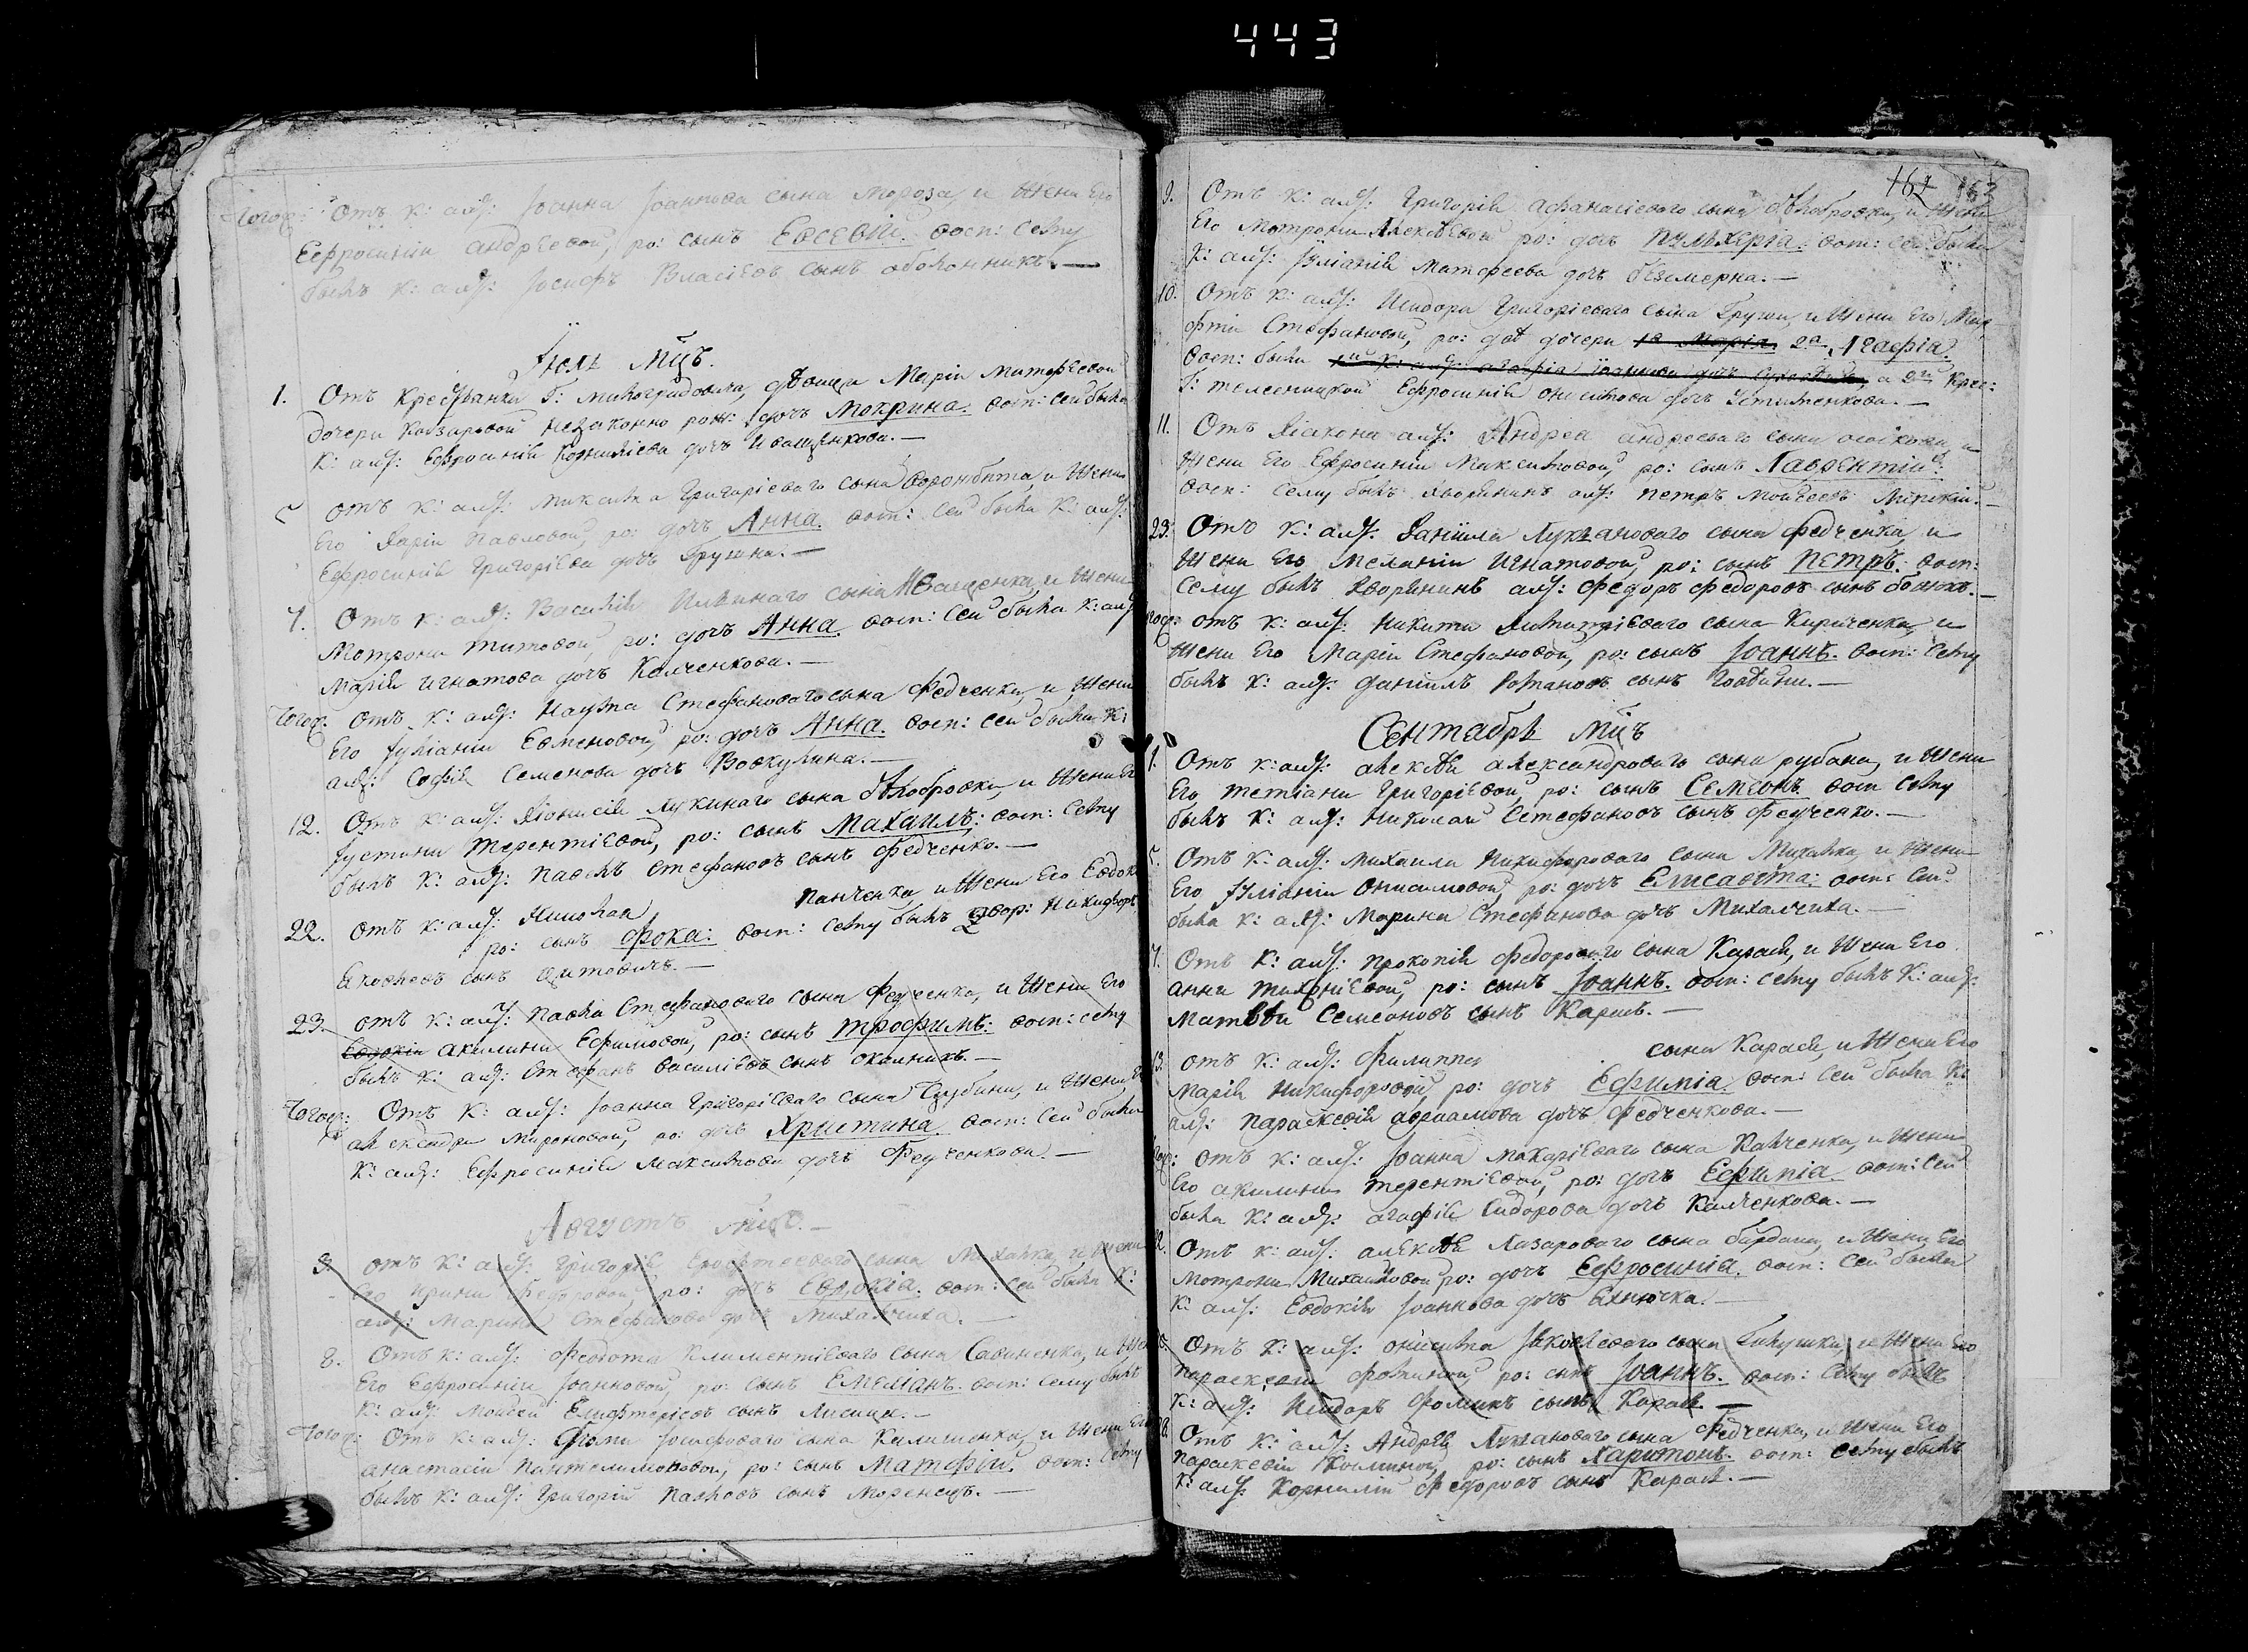 443
Тогож: Отъ к: алѯ: Іоанна Іоаннова сына Мороза, и жени Его
Ефросиніи андрѣевой, ро: сынъ Евсевій. восп: сему
былъ к: алѯ: Іосифъ Власіевъ сынъ оболонникъ.—
Іюль мцъ.
1. Отъ крестьянки Г: дѣвици Маріи Матфѣевой
дочери Козаровой незаконно рож: дочь Мокрина. восп: сей была
к: алѯ: Ефросинія Корниліева дочь Иващенкова.—
отъ к: алѯ: Максима Григоріеваго сына Ворожбита, и жени
Его Даріи Павловой, ро: дочь Анна. восп: сей была к: алѯ:
Ефросинія Григоріева дочь
7. Отъ к: алѯ: Василія Ильинаго сына Иващенка, и жени
Мотрони Титовой, ро: дочь Анна. восп: сей была к: алѯ:
Марія Игнатова дочь Калченкова.—
Тогож: Отъ к: алѯ: Наума Стефановаго сына Федченка, и жени
Его Іуліаніи Евменовой, ро: дочь Анна. восп: сей была к:
алѯ: Софія Семенова дочь Вовкулина.—
12. Отъ к: алѯ: Діонисія Лукинаго сына бѣлобровки, и жени Ег
Іустини Терентіевой, ро: сынъ Махаилъ: восп: сему
былъ к: алѯ: Павелъ Стефановъ сынъ Федченко.—
22. отъ к: алѯ: Николая Панченка, и жени Его Евдок
ро: сынъ Фока: восп: сему былъ двор: Никифоръ
Яковлевъ сынъ
23. отъ к: алѯ: Павла Стефановаго сына Федченка, и жени Его
Евдокіи акилини Ефимовой, ро: сынъ Трофимъ: восп: сему
былъ к: алѯ: Стефанъ Василіевъ сынъ
Тогож: Отъ к: алѯ: Іоанна Григоріеваго сына и жени
александри Мироновой, ро: дочь Христина. восп: сей была
к: алѯ: Ефросинія Максимова дочь Федченкова.—
Августъ мцъ.—
отъ к: алѯ: Григорія сына Михалка, и жени
Его Ирини Федоровой, ро: дочь Евдокіа. восп: сей была к:
алѯ: Марина Стефанова дочь Михалчиха.
8. Отъ к: алѯ: Феодота Климентіеваго сына Савиненка, и же
Его Ефросиніи Іоанновой, ро: сынъ Емеліанъ. восп: сему былъ
к: алѯ: Моисей Елифтеріевъ сынъ Лисица.—
Тогож: Отъ к: алѯ: Фоми Іосифоваго сына и жени Ег
анастасіи Пантелимоновой, ро: сынъ Матфій. восп: сему
былъ к: алѯ: Григорій Павловъ сынъ
162 163
9. Отъ к: алѯ: Григорія афанасіеваго сына бѣлобровки, и жени
Его Мотрони Алексѣевой ро: дочь Пульхеріа: восп: сей была
к: алѯ: Іуліанія Матфеева дочь безмерна.—
10. Отъ к: алѯ: Исидора Григоріеваго сына и жени Его
Стефановой, ро: двѣ дочери 1а Марія 2а Агафіа.
восп: были а 2й крес:
Ефросинія Онисимова дочь Устименкова.—
11. Отъ діакона алѯ: Андрея андрееваго сына и
жени Его Ефросиніи Максимовой, ро: сынъ Лаврентій:
восп: сему былъ дворянинъ алѯ: Петръ Моисеевъ
23: Отъ к: алѯ: Даніила Лукьановаго сына Федченка, и
жени Его Меланіи Игнатовой, ро: сынъ Петръ. восп:
сему былъ дворянинъ алѯ: Федоръ Федоровъ сынъ
отъ к: алѯ: Никити Димитріеваго сына Кириченка, и
жени Его Маріи Стефановой, ро: сынъ Іоаннъ. восп: сему
былъ к: алѯ: Даніилъ Романовъ сынъ
Сентабрь мцъ
1. Отъ к: алѯ: алексѣя александроваго сына рубана, и жени
Его Тетіани Григоріевой, ро: сынъ Семеонъ восп сему
былъ к: алѯ: Николай Стефановъ сынъ Федченко.—
Отъ к: алѯ: Михаила Никифороваго сына Михалка, и жени
Его Іуліаніи Онисимовой, ро: дочь Елисавета: восп: сей
была к: алѯ: Марина Стефанова дочь Михалчиха.—
7. Отъ к: алѯ: Прокопія Федороваго сына Карася, и жени Его
анни Тихоніевой, ро: сынъ Іоаннъ. восп: сему былъ к: алѯ:
Матвѣй Семеоновъ сынъ Карась.—
13. отъ к: алѯ: Филиппа сына Карася, и жени Его
Марія Никифоровой, ро: дочь Ефиміа восп: сей была к:
алѯ: Параскевія авраамова дочь Федченкова.—
отъ к: алѯ: Іоанна Макаріеваго сына Калченка, и жени
Его акилини Терентіевой, ро: дочь Ефиміа восп: сей
была к: алѯ: агафія Сидорова дочь Калченкова.—
Отъ к: алѯ: алексѣя Лазароваго сына и жени Его
Мотрони Михайловой, ро: дочь Ефросиніа. восп: сей была
к: алѯ: Евдокія Іоаннова дочь
Отъ к: алѯ: онисима Іаковлеваго сына и жени Его
Параскевіи Фоминой, ро: снъ Іоаннъ. восп: сему былъ
к: алѯ: Исидоръ Фоминъ сынъ Карась.—
28. Отъ к: алѯ: Андрея Лукьановаго сына Федченка, и жени Его
Параскевіи Косминой, ро: сынъ Харитонъ. восп: сему былъ
к: алѯ: Корнилій Федоровъ сынъ Карась.—